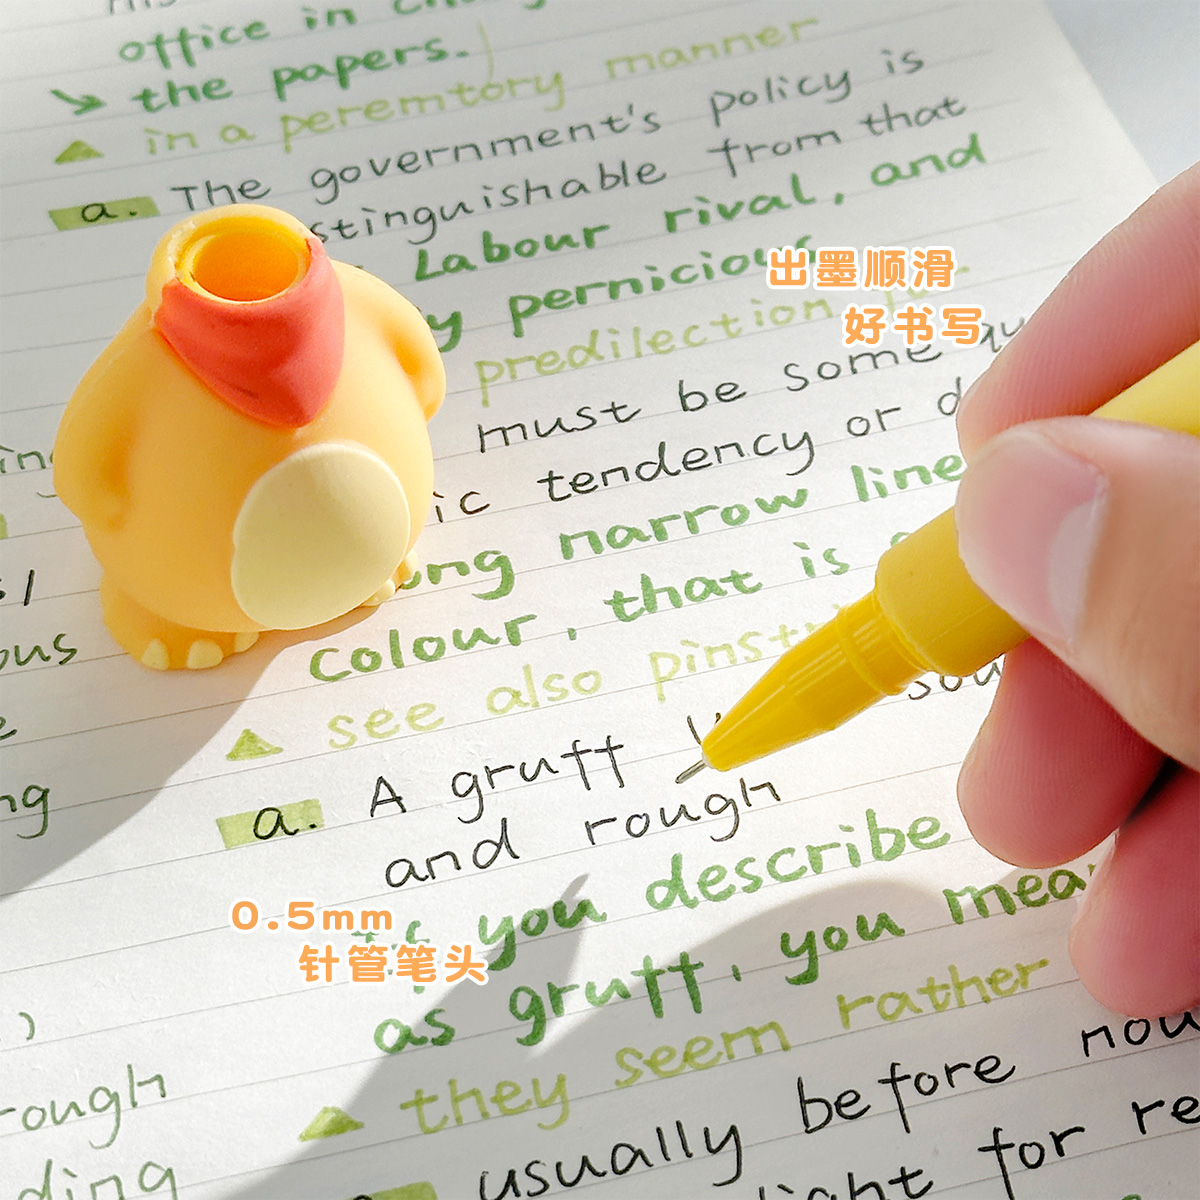 office in
the papers.
in a peremtory manner
a. The government's policy is
stinguishable from that
Labour rival, and
pernicious
出墨顺滑
predilection
好书写
must be some
ic tendency or
ong narrow line
colour, that is
ous
see also
a. A gruff
and rough
you describe
0.5mm
针管笔头
as gruff, you mean
they seem rather
rough
usually before
for